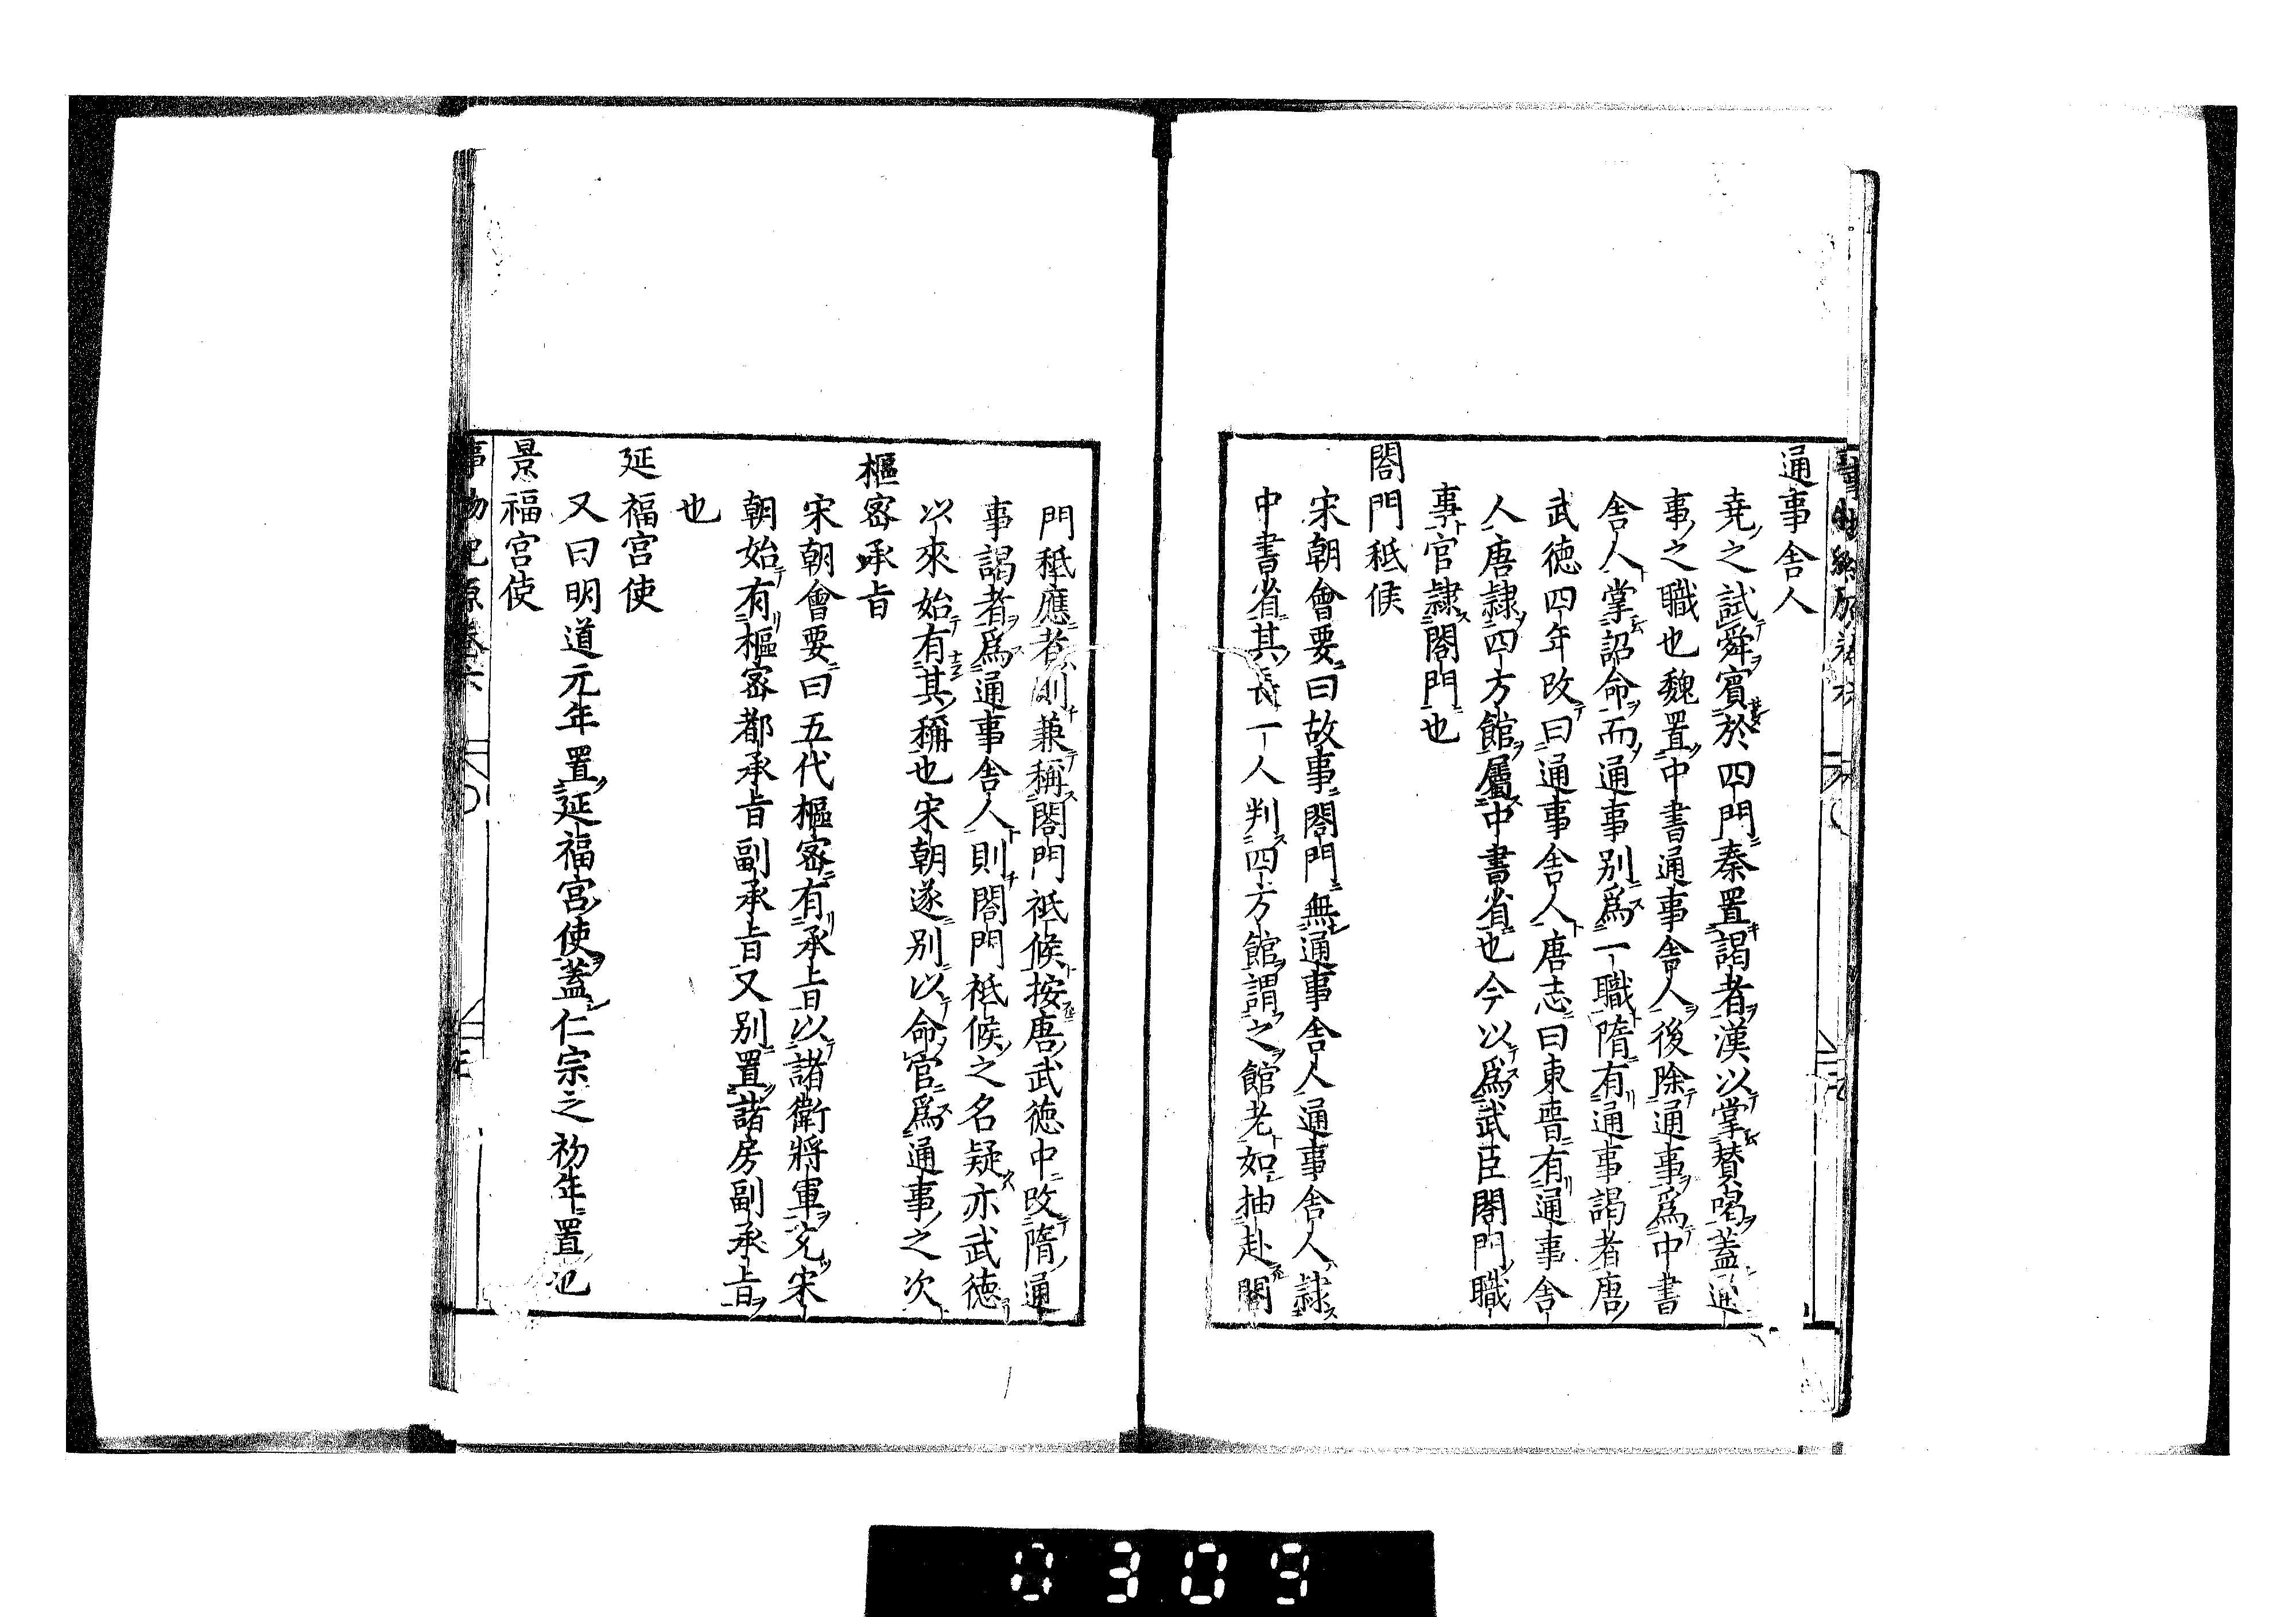 通事舎人
堯之試舜賓於四門秦置謁者漢以掌賛喝蓋通
事之職也魏置中書通事舎人後除通事爲中書
舎人掌詔命而通事別爲一職隋有通事謁者唐
武徳四年改曰通事舎人唐志曰東晉有通事舎
人唐隷四方館屬中書省也今以爲武臣閤門職
事官隷閤門也
閤門祗候
宋朝會要曰故事閤門無通事舎人通事舎人隷
中書省其長一人判四方館謂之館老如抽赴閤
門祗應者則兼稱閤門祗候按唐武徳中改隋通
事謁者爲通事舎人則閤門祗候之名疑亦武徳
以來始有其稱也宋朝遂別以命官爲通事之次
樞宻承旨
宋朝會要曰五代樞宻有承旨以諸衛將軍充宋
朝始有樞宻都承旨副承旨又別置諸房副承旨
也
延福宮使
又曰明道元年置延福宮使蓋仁宗之初年置也
景福宮使
事物紀原卷六
0309